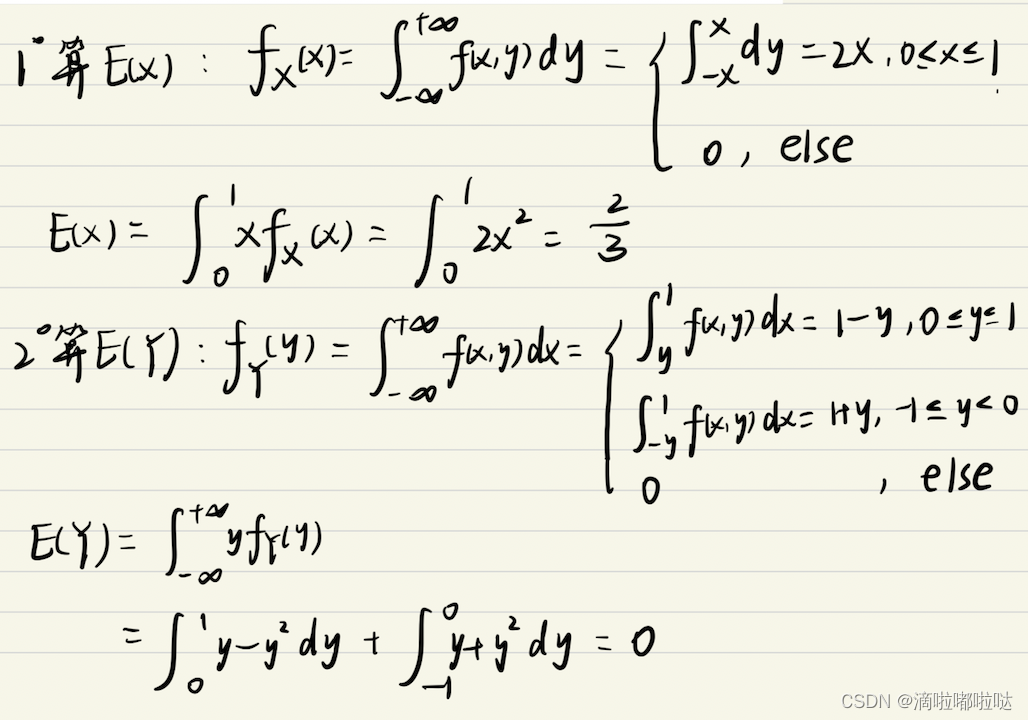 1° 算 E(x) : f_X(x) = ∫_{-∞}^{+∞} f(x,y) dy = { ∫_{-x}^{x} dy = 2x , 0≤x≤1
0 , else
E(x) = ∫_0^1 x f_X(x) = ∫_0^1 2x² = 2/3
2° 算 E(Y) : f_Y(y) = ∫_{-∞}^{+∞} f(x,y) dx = { ∫_y^1 f(x,y) dx = 1-y , 0≤y≤1
∫_{-y}^1 f(x,y) dx = 1+y, -1≤y<0
0 , else
E(Y) = ∫_{-∞}^{+∞} y f_Y(y)
= ∫_0^1 y-y² dy + ∫_{-1}^0 y+y² dy = 0
CSDN @滴啦嘟啦哒